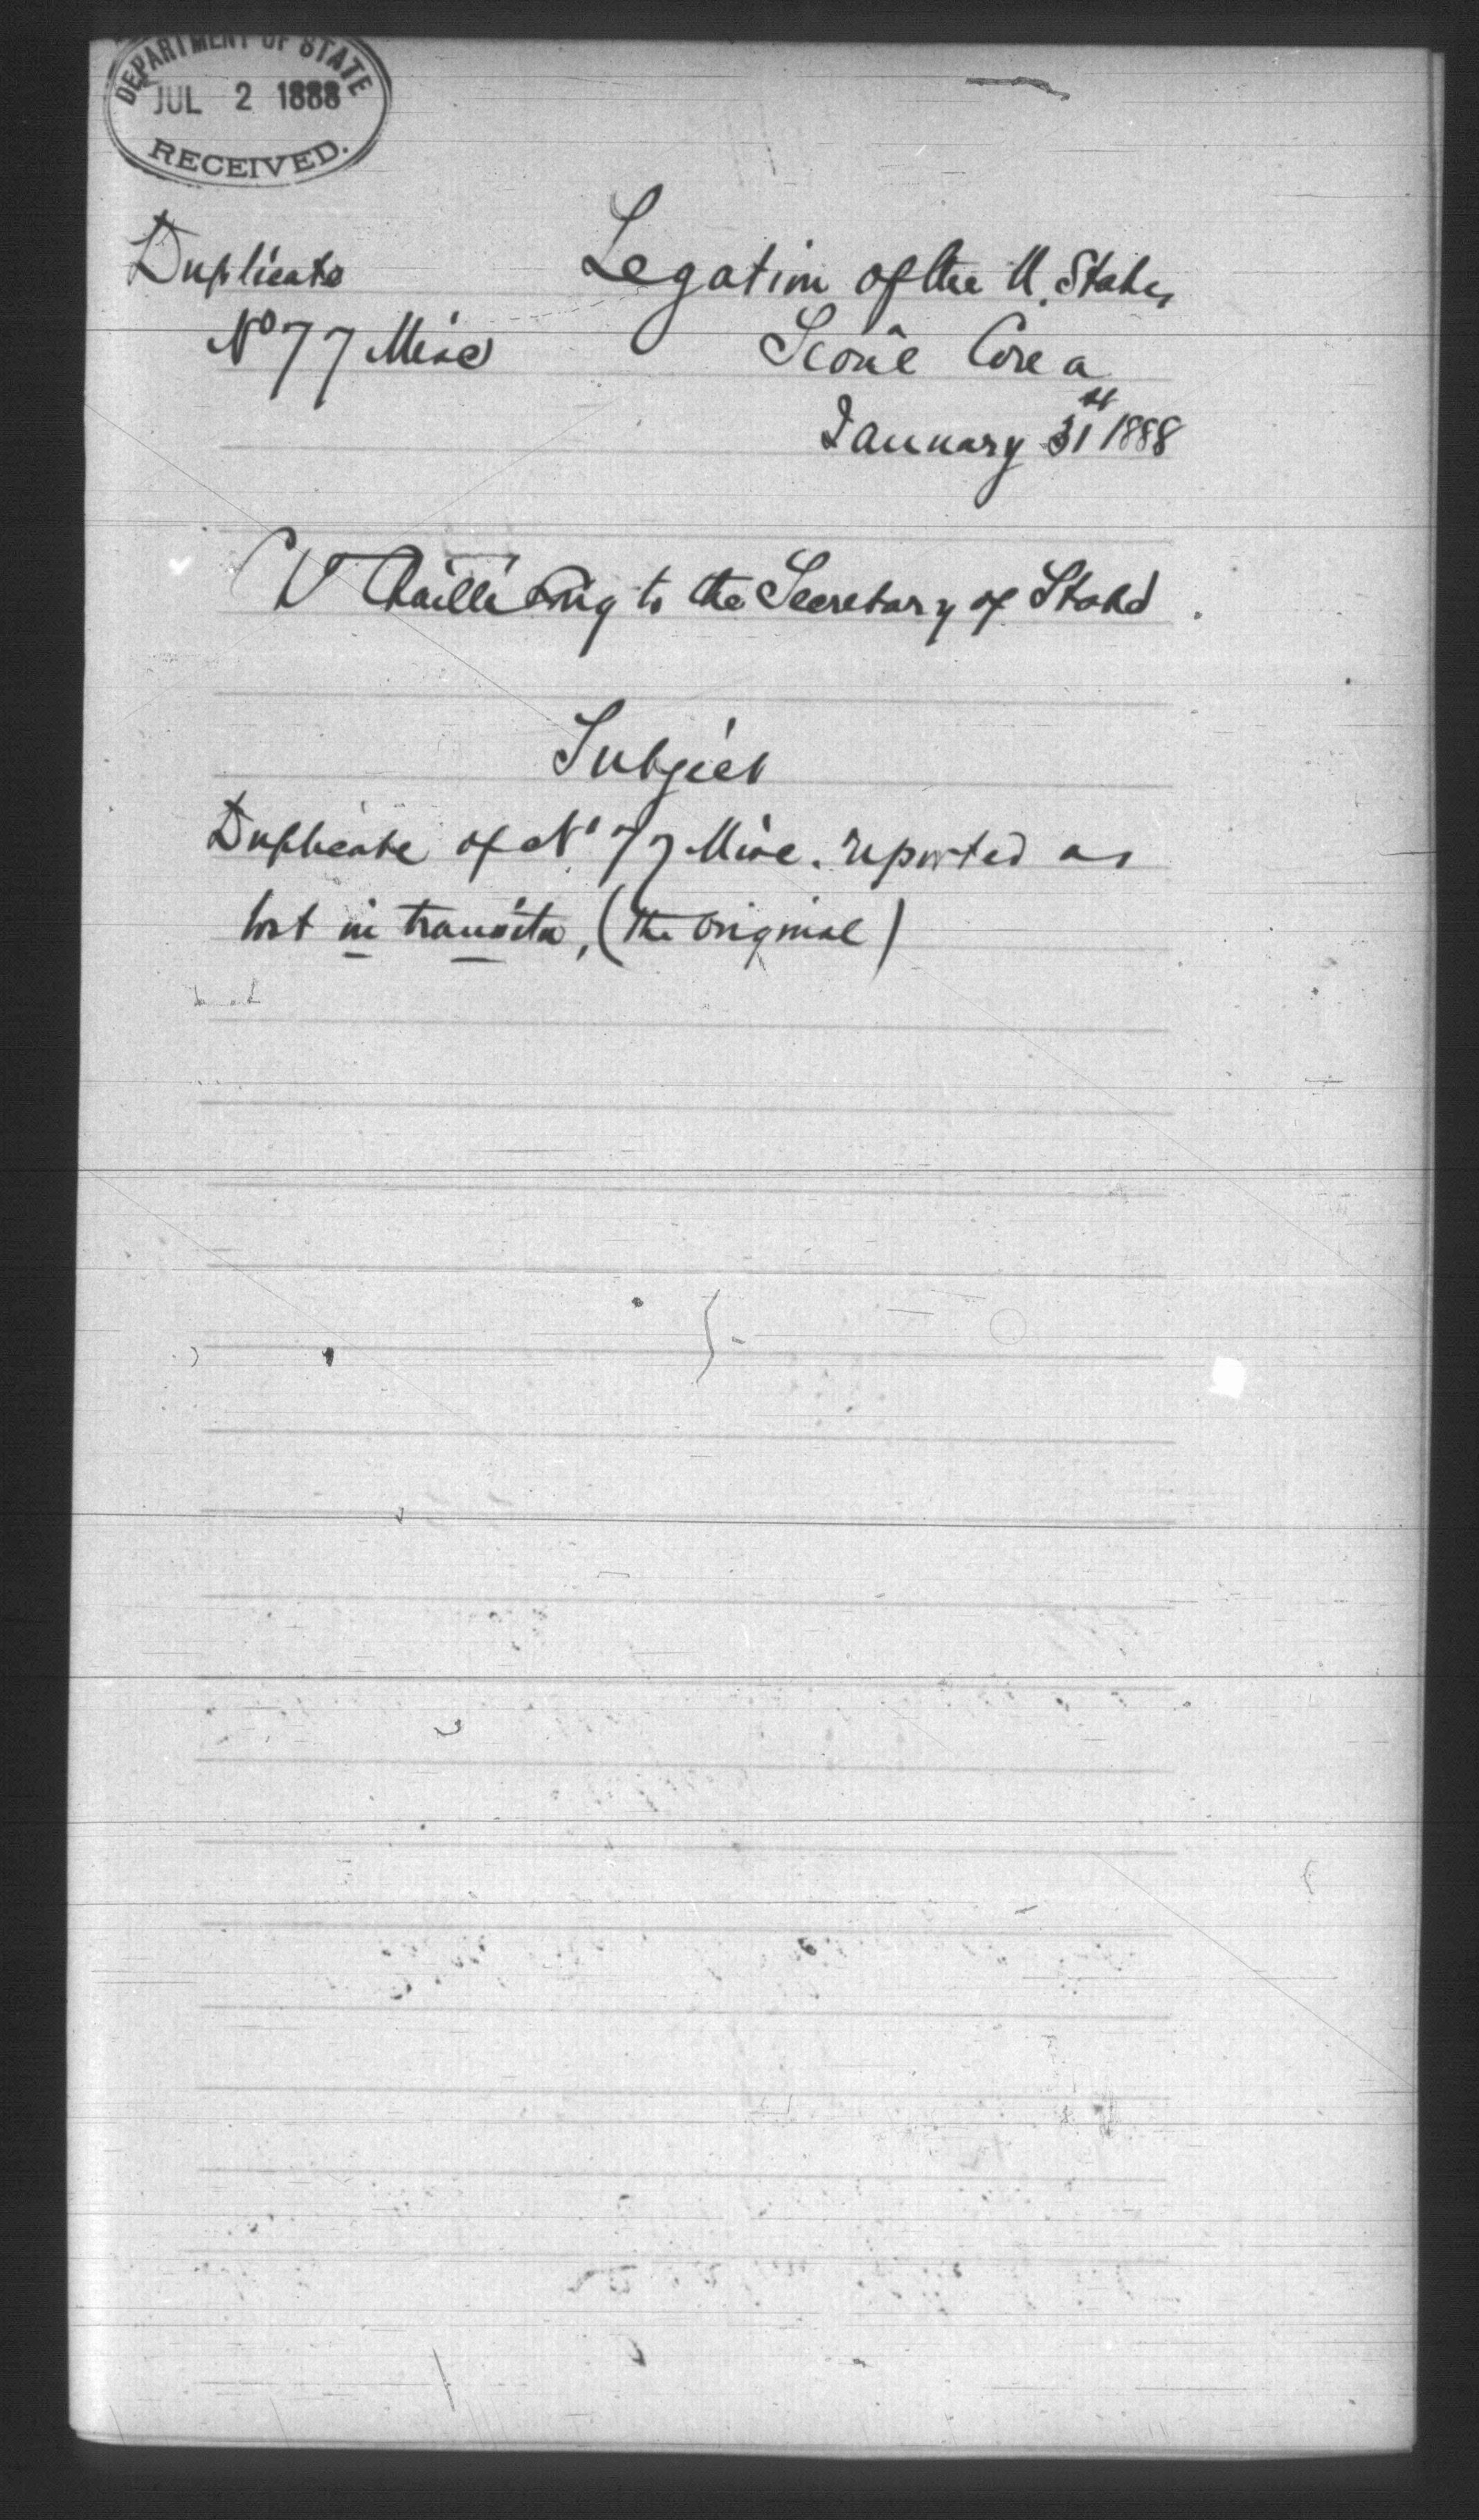 DEPARTMENT OF STATE
JUL 2 1888
RECEIVED.
Duplicate
Legation of the U. States
No 77 Misc
Seoul Corea
January 31st 1888
Chaillé Long to the Secretary of State.
Subject
Duplicate of No 77 Misc. reported as
lost in transitu, (the original)